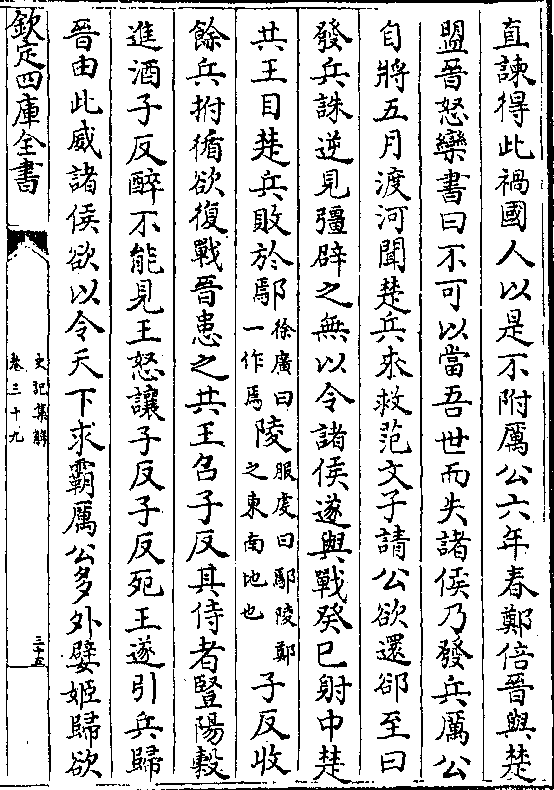 直諫得此禍國人以是不附厲公六年春鄭倍晉與楚
盟晉怒欒書曰不可以當吾世而失諸侯乃發兵厲公
自將五月渡河聞楚兵來救范文子請公欲還郤至曰
發兵誅逆見彊辟之無以令諸侯遂與戰癸巳射中楚
共王目楚兵敗於鄢徐廣曰一作焉陵服虔曰鄢陵鄭之東南地也子反收
餘兵拊循欲復戰晉患之共王召子反其侍者豎陽穀
進酒子反醉不能見王怒讓子反子反死王遂引兵歸
晉由此威諸侯欲以令天下求霸厲公多外嬖姬歸欲
欽定四庫全書
史記集解
卷三十九
三十五